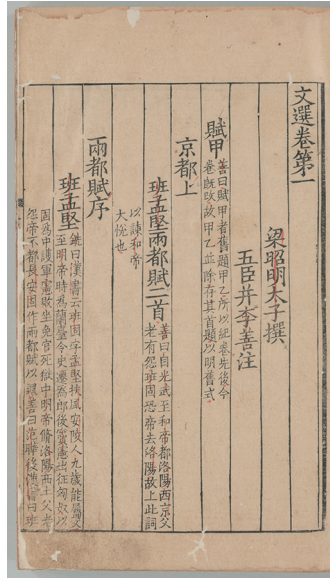 文選卷第一
梁昭明太子撰
五臣并李善注
賦甲
善曰賦甲者舊題甲乙所以紀卷先後今
卷既改故甲乙並除存其首題以明舊式
京都上
班孟堅兩都賦二首
善曰自光武至和帝都洛陽西京父
老有怨班固恐帝去洛陽故上此詞
以諫和帝
大悅也
兩都賦序
班孟堅
銑曰漢書云班固字孟堅扶風安陵人九歲能屬文
至明帝時為蘭臺令史遷為郎後竇憲出征匈奴以
固為中護軍憲敗坐免官死獄中明帝脩洛陽西土父老
怨帝不都長安固作兩都賦以諷善曰范曄後漢書曰班